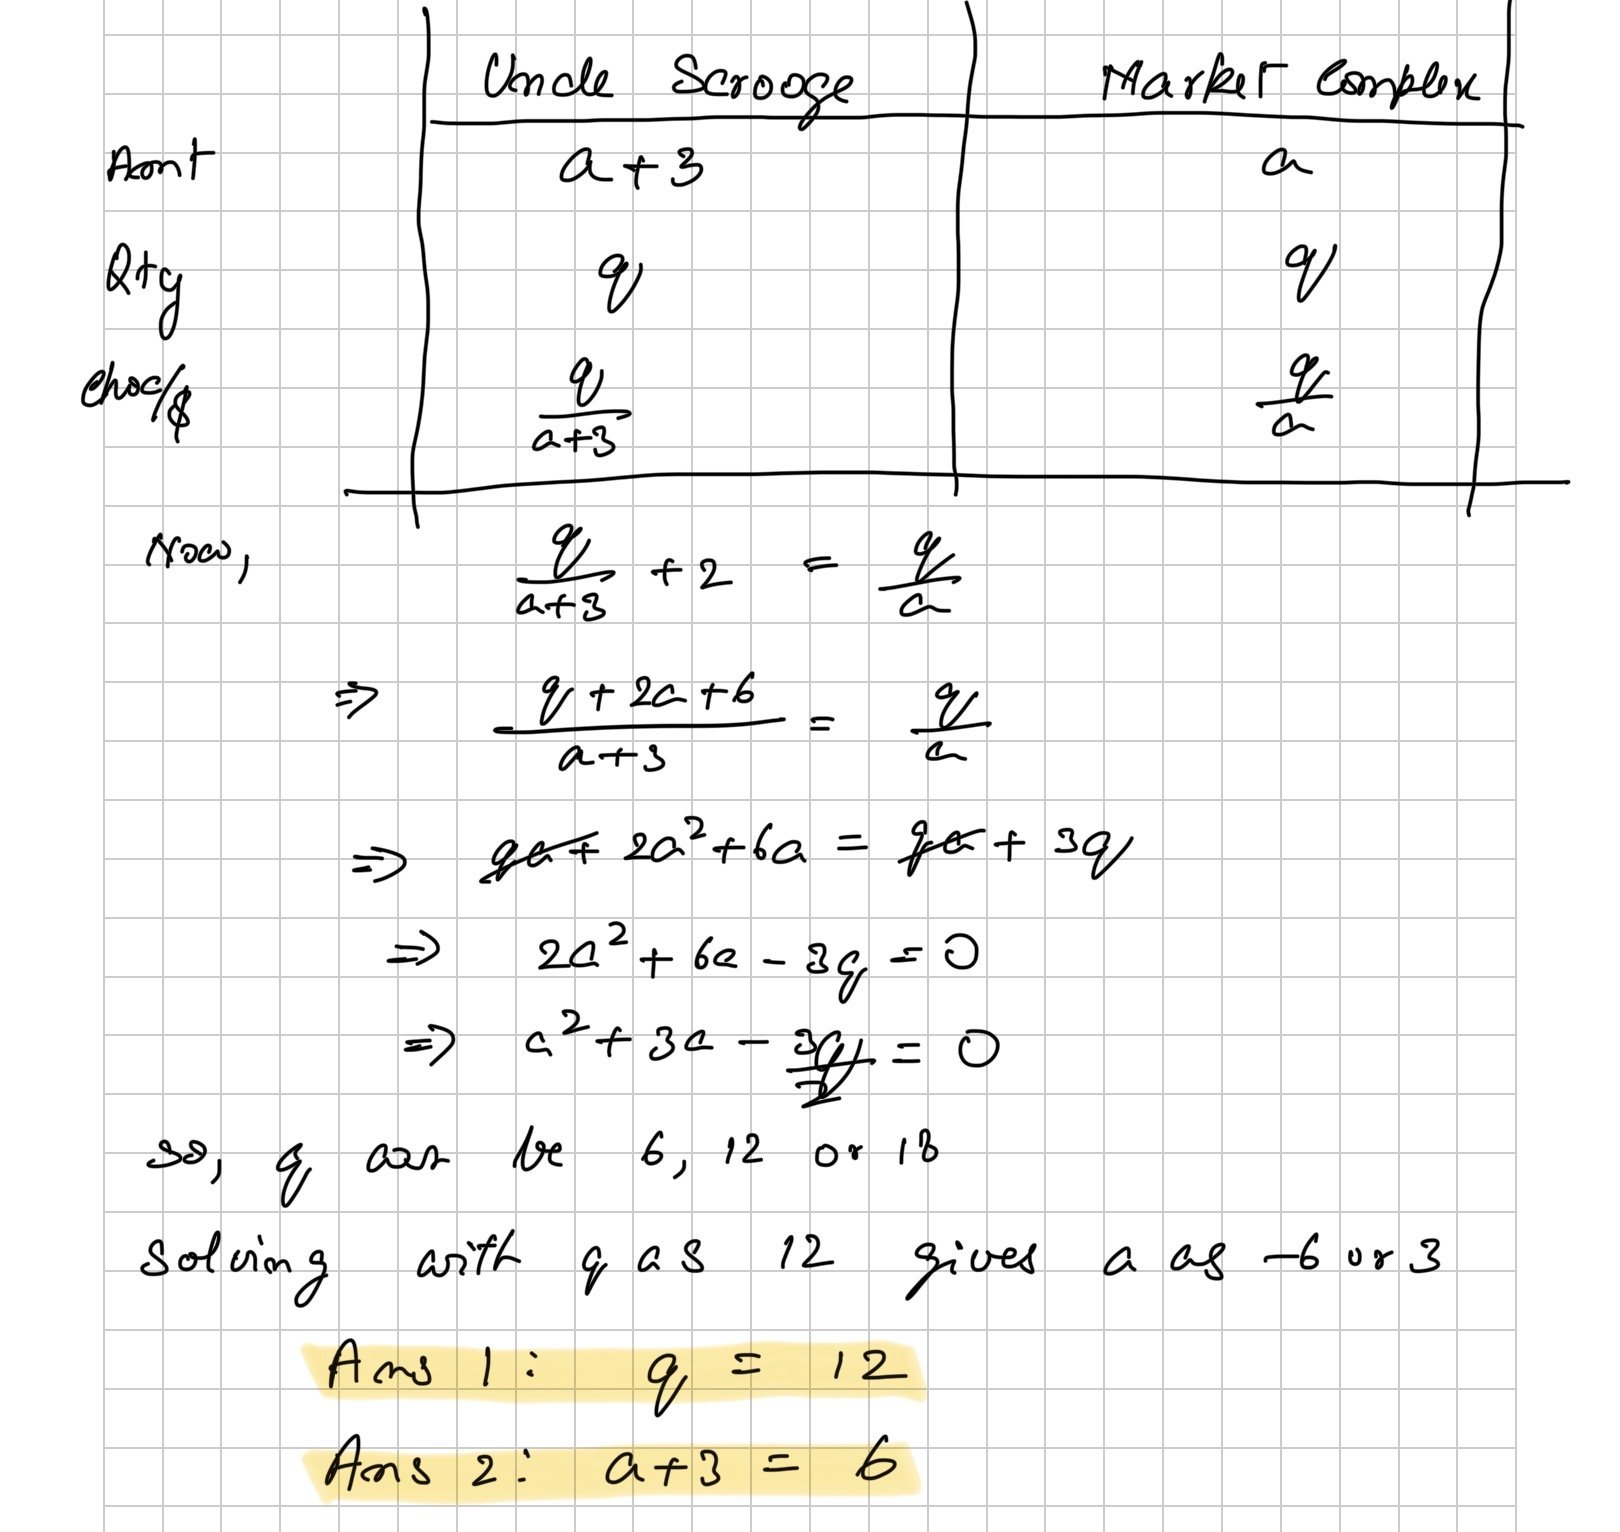 Uncle Scrooge Market Complex
Amt a + 3 a
Qty q q
Choc/$ q/(a+3) q/a
Now, q/(a+3) + 2 = q/a
⇒ (q + 2a + 6)/(a+3) = q/a
⇒ qa + 2a² + 6a = qa + 3q
⇒ 2a² + 6a - 3q = 0
⇒ a² + 3a - 3q/2 = 0
so, q can be 6, 12 or 18
Solving with q as 12 gives a as -6 or 3
Ans 1: q = 12
Ans 2: a+3 = 6